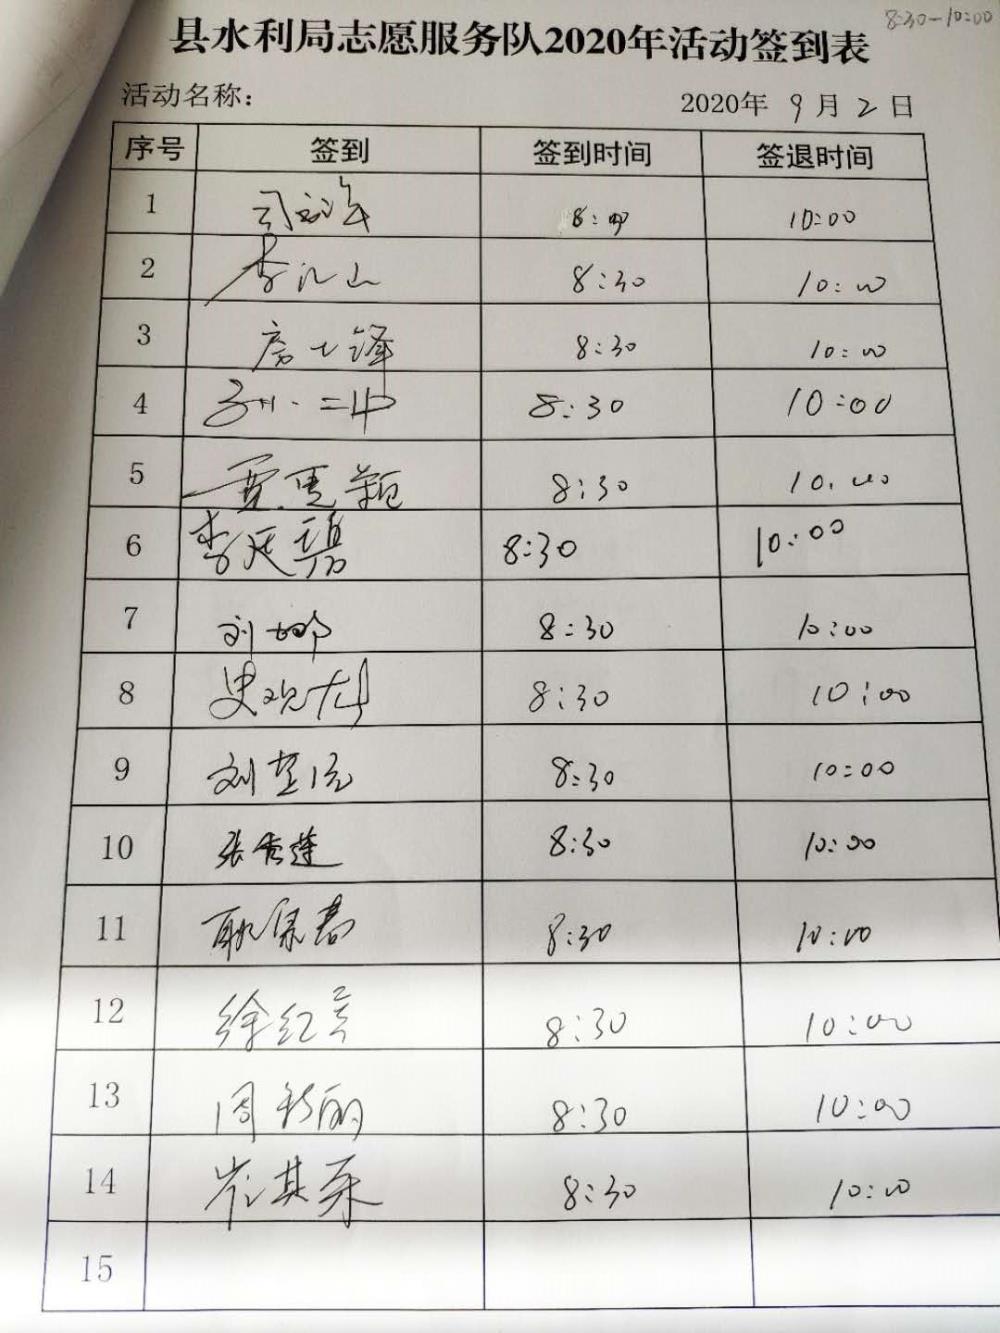 8:30-10:00
县水利局志愿服务队2020年活动签到表
活动名称：
2020年 9月2日
序号 签到 签到时间 签退时间
1 8:00 10:00
2 李汇山 8:30 10:00
3 房士锋 8:30 10:00
4 8:30 10:00
5 8:30 10:00
6 李廷碧 8:30 10:00
7 刘娜 8:30 10:00
8 8:30 10:00
9 8:30 10:00
10 张秀莲 8:30 10:00
11 耿保君 8:30 10:00
12 徐红 8:30 10:00
13 周 丽 8:30 10:00
14 8:30 10:00
15